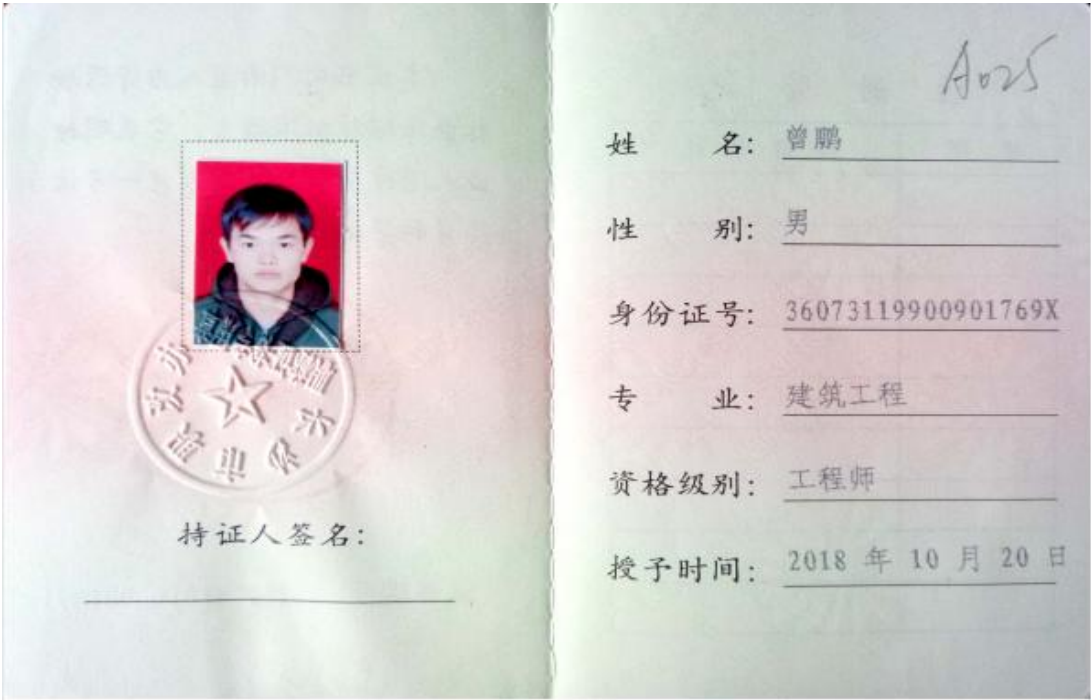 持证人签名：
A025
姓 名：曾鹏
性 别：男
身份证号：36073119900901769X
专 业：建筑工程
资格级别：工程师
授予时间：2018 年 10 月 20 日